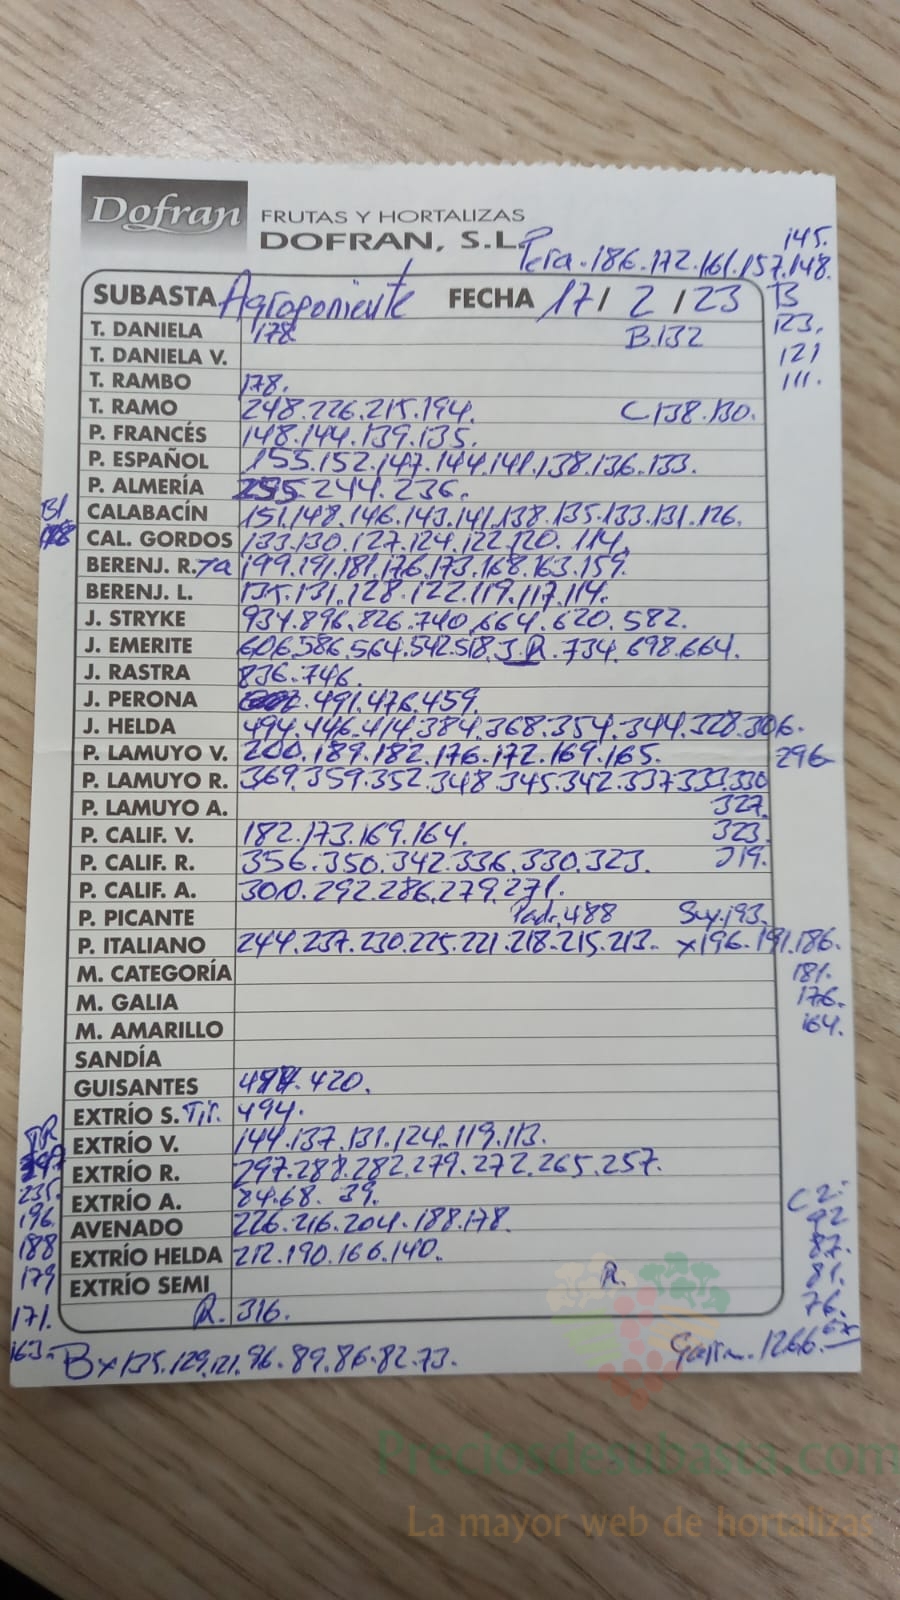 Dofran FRUTAS Y HORTALIZAS
DOFRAN, S.L.
145.
Pera. 186. 172. 161. 157. 148.
SUBASTA Agroponiente FECHA 17/ 2 / 23 B
T. DANIELA 178 B.132 123.
T. DANIELA V. 121
T. RAMBO 178. 111.
T. RAMO 248. 226. 215. 194. C 138. 130.
P. FRANCÉS 148. 144. 139. 135.
P. ESPAÑOL 155. 152. 147. 144. 141. 138. 136. 133.
P. ALMERÍA 255. 244. 236.
CALABACÍN 151. 148. 146. 143. 141. 138. 135. 133. 131. 126.
CAL. GORDOS 133. 130. 127. 124. 122. 120. 114.
BERENJ. R. 199. 191. 181. 176. 173. 168. 163. 159.
BERENJ. L. 135. 131. 128. 122. 119. 117. 114.
J. STRYKE 934. 896. 826. 740. 664. 620. 582.
J. EMERITE 606. 586. 564. 542. 518. J.R. 734. 698. 664.
J. RASTRA 836. 746.
J. PERONA 491. 476. 459.
J. HELDA 494. 446. 414. 384. 368. 354. 344. 328. 306.
P. LAMUYO V. 200. 189. 182. 176. 172. 169. 165. 296
P. LAMUYO R. 369. 359. 352. 348. 345. 342. 337. 333. 330
P. LAMUYO A. 327.
P. CALIF. V. 182. 173. 169. 164. 323.
P. CALIF. R. 356. 350. 342. 336. 330. 323. 319.
P. CALIF. A. 300. 292. 286. 279. 271.
P. PICANTE Padr. 488 193.
P. ITALIANO 244. 237. 230. 225. 221. 218. 215. 213. x196. 191. 186.
M. CATEGORÍA 181.
M. GALIA 176.
M. AMARILLO 164.
SANDÍA
GUISANTES 420.
EXTRÍO S. Tir. 494.
TR EXTRÍO V. 144. 137. 131. 124. 119. 113.
EXTRÍO R. 297. 288. 282. 279. 272. 265. 257.
235. EXTRÍO A. 84. 68. 39.
196. AVENADO 226. 216. 204. 188. 178. C 2ª
188 EXTRÍO HELDA 212. 190. 166. 140. 92
179 EXTRÍO SEMI R. 87.
171. R. 316. 81.
76.
163. Bx 135. 129. 121. 96. 89. 86. 82. 73. 1266.
Preciosdesubasta.com
La mayor web de hortalizas